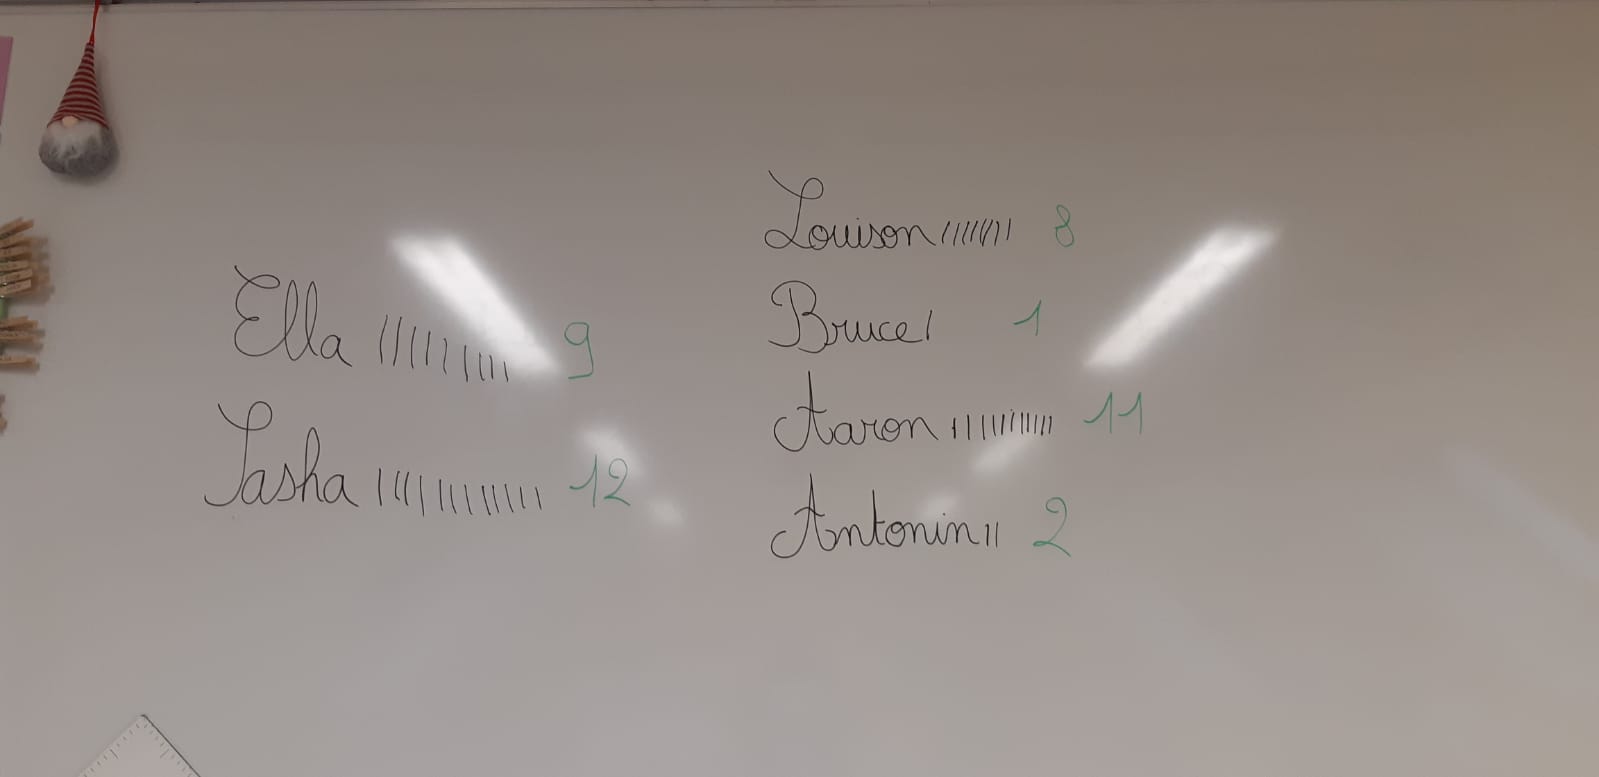 Ella ||||||||| 9
Sasha |||||||||||| 12
Louison |||||||| 8
Bruce | 1
Aaron ||||||||||| 11
Antonin || 2